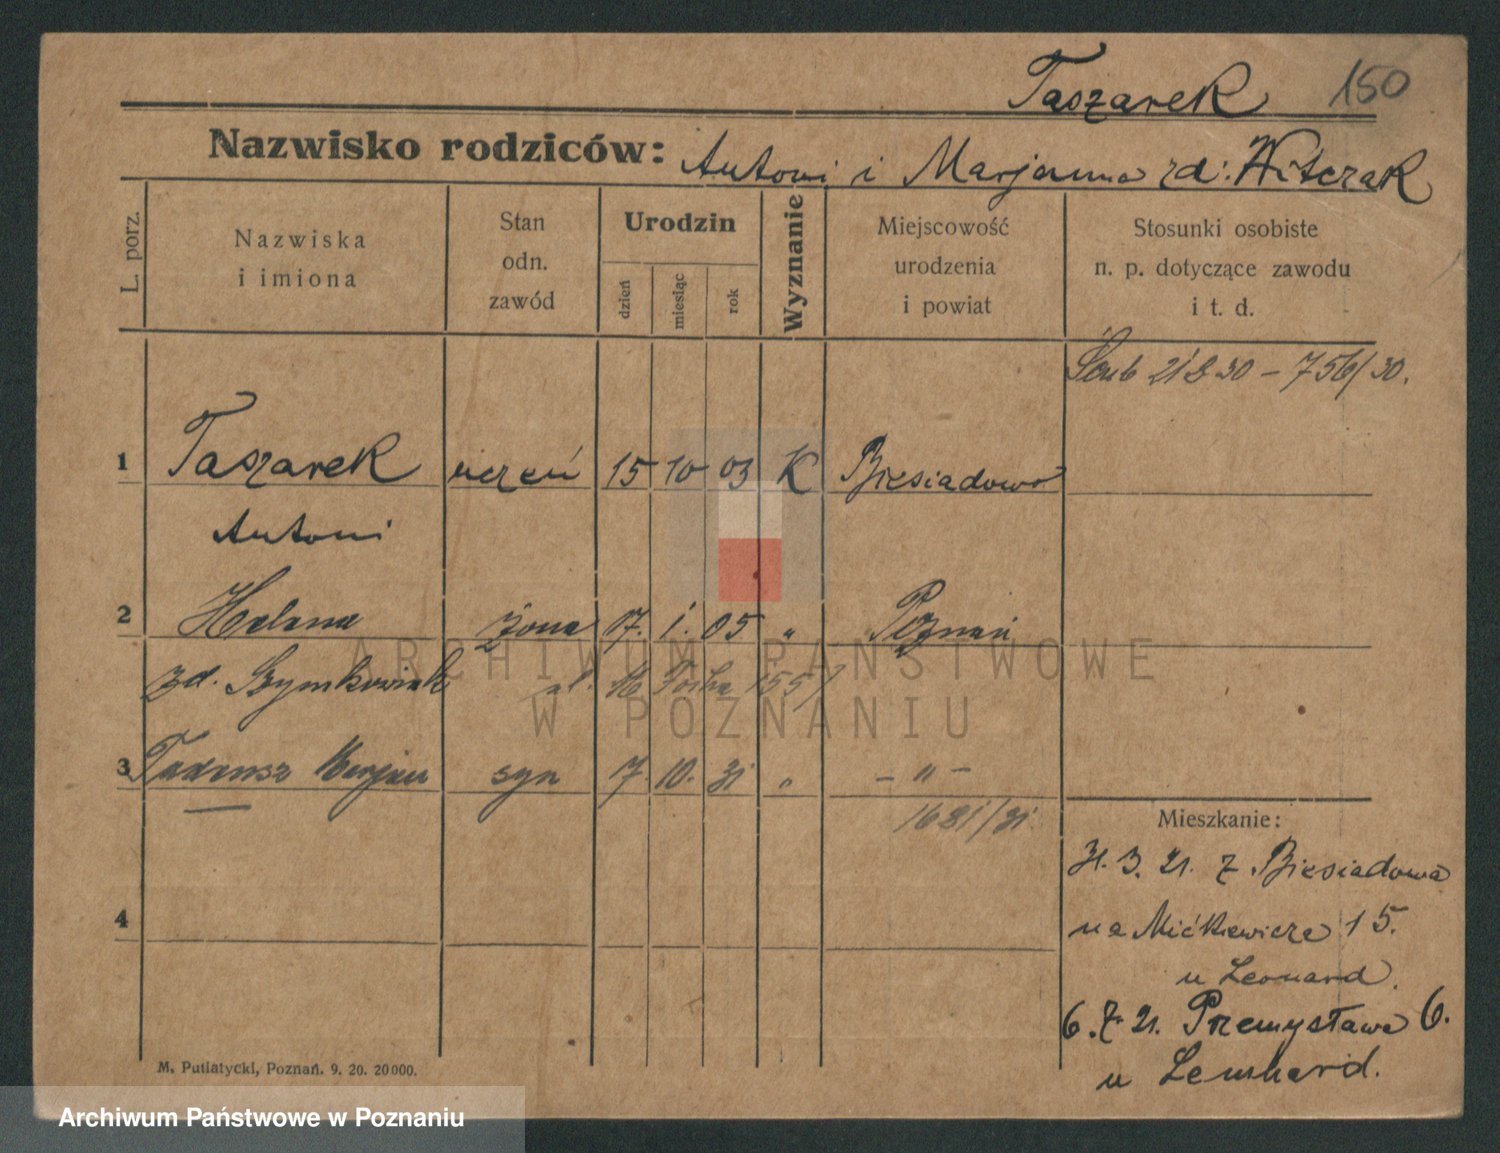 Taszarek 150
Nazwisko rodziców: Antoni i Marjanna zd: Witczak
L. porz.
Nazwiska i imiona
Stan odn. zawód
Urodzin
dzień miesiąc rok
Wyznanie
Miejscowość urodzenia i powiat
Stosunki osobiste n. p. dotyczące zawodu i t. d.
Ślub 21 8 30 – 756/30.
1 Taszarek uczeń 15 10 03 K Biesiadowo
Antoni
2 Helena żona 17. 1. 05 " Poznań
zd. Szymkowiak ul. M Focha 155/
3 Tadeusz Marjan syn 7. 10. 31 " – " –
1681/31
4
Mieszkanie:
31. 3. 21. z Biesiadowa
na Mickiewicza 15.
u Leonard.
6. 7. 21. Przemysława 6.
u Lemhard.
M. Putiatycki, Poznań. 9. 20. 20000.
ARCHIWUM PAŃSTWOWE
W POZNANIU
Archiwum Państwowe w Poznaniu